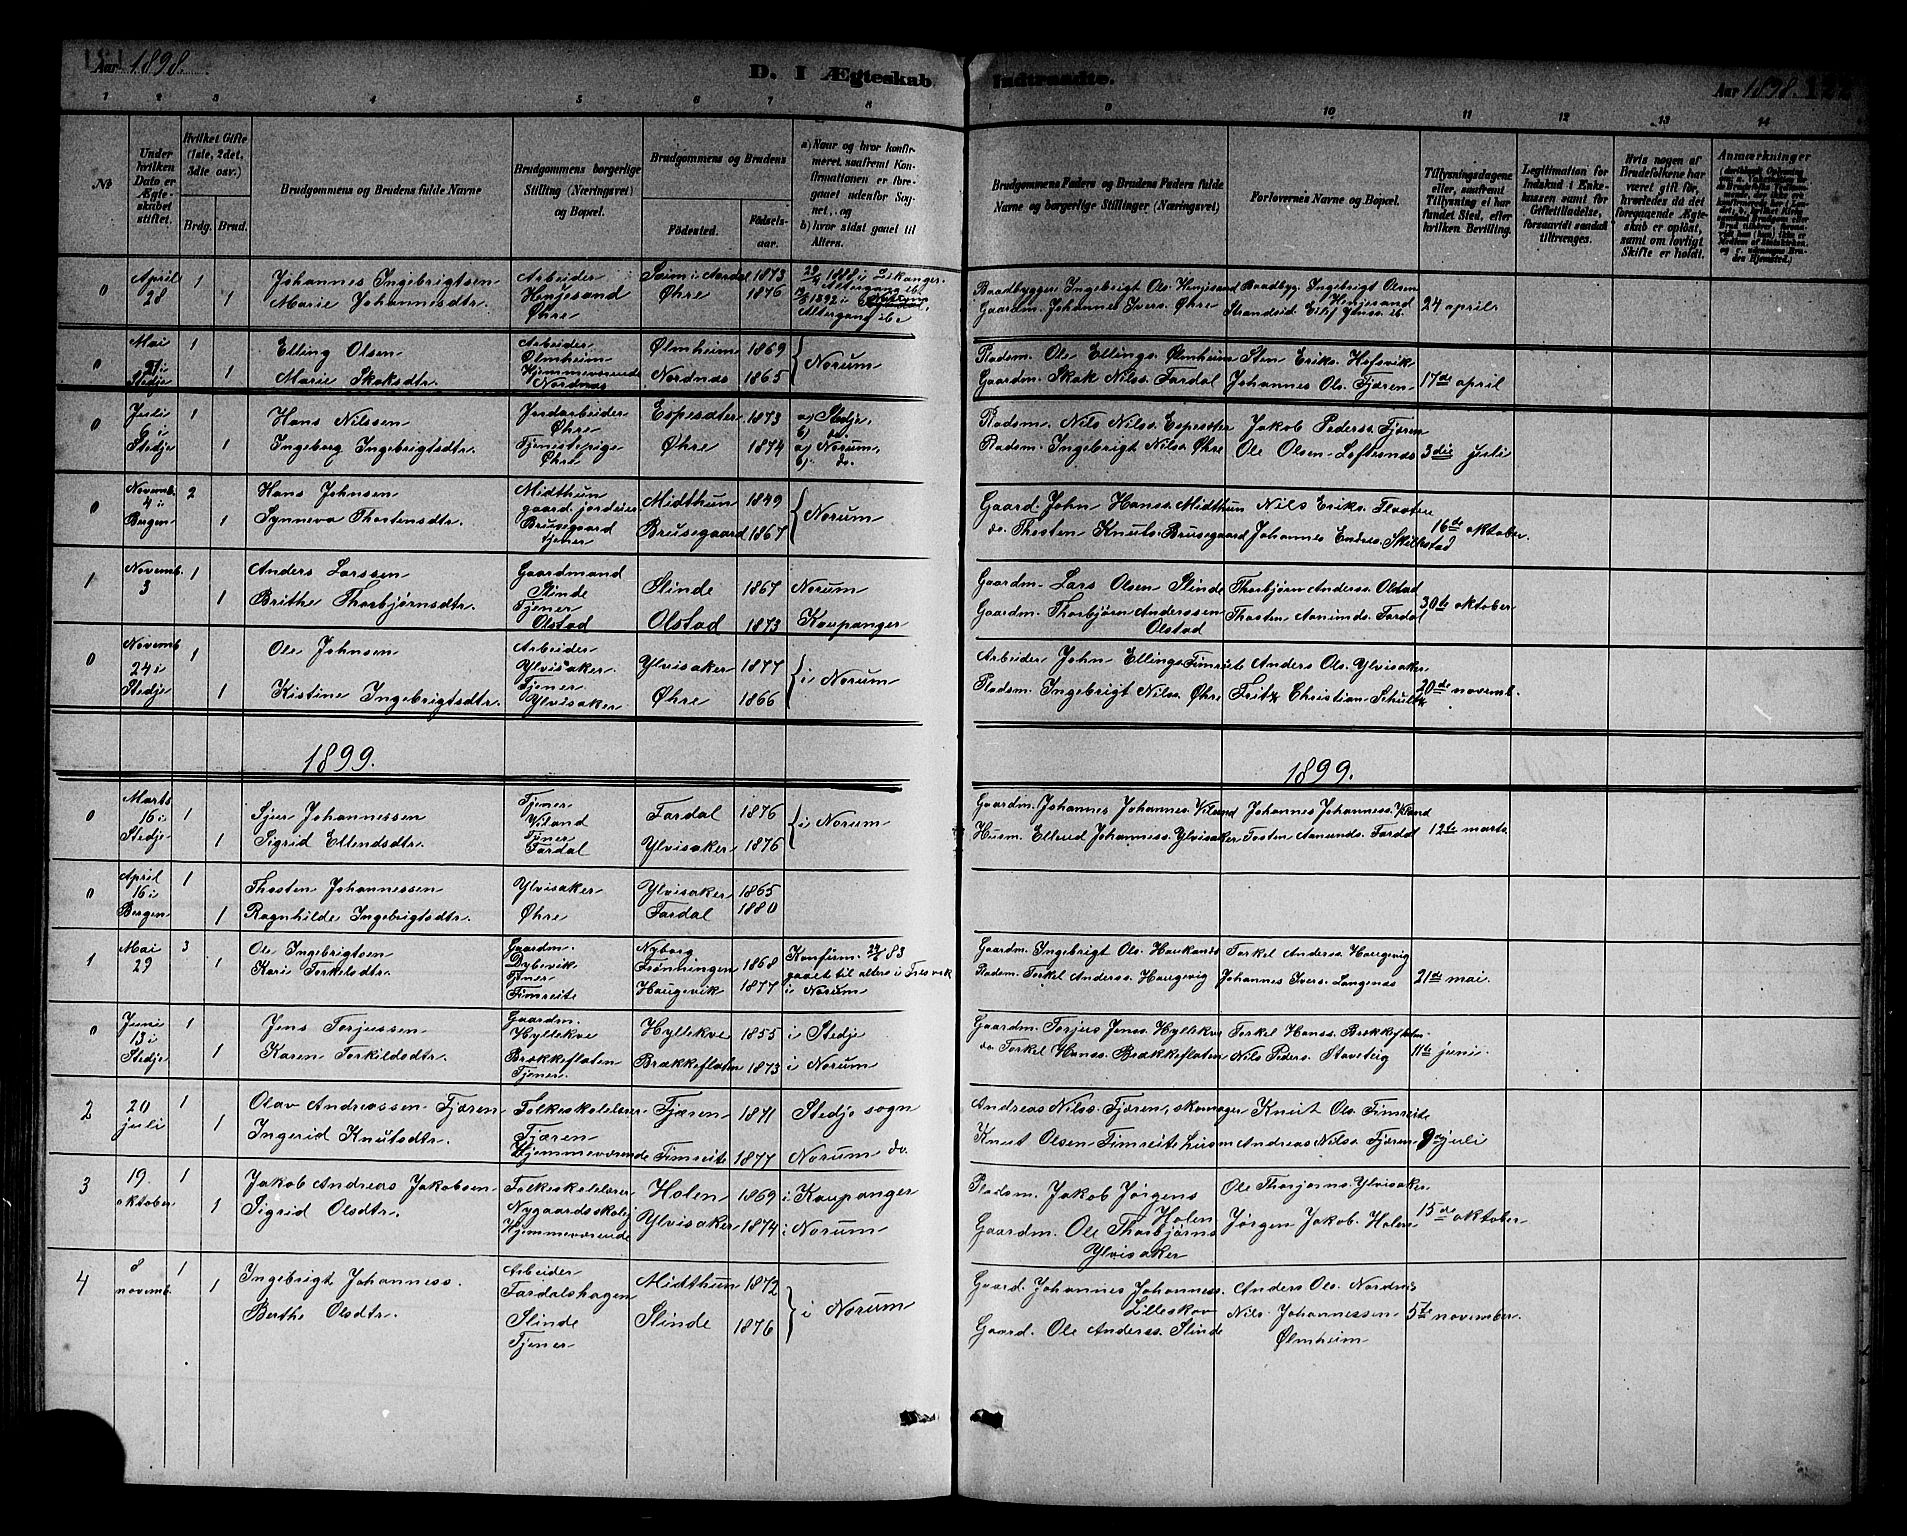 Aar 1898.
D. I Ægteskab
1 2 3 4 5 6 7 8
№
Under hvilken Dato er Ægteskabet stiftet.
Hvilket Gifte (1ste, 2det, 3die osv.)
Brdg. Brud.
Brudgommens og Brudens fulde Navne
Brudgommens borgerlige Stilling (Næringsvei) og Bopæl.
Brudgommens og Brudens
Födested. Födselsaar.
a) Naar og hvor konfirmeret, saafremt Konfirmationen er foregaaet udenfor Sognet, og
b) hvor sidst gaaet til Alters.
0 April 28 1 Johannes Ingebrigtsen Arbeider Henjesand Soim i Aardal 1873
1 Marie Johannesdtr. Øhre Øhre 1876
Altergang ibi
0 Mai i Stedje 1 Elling Olsen Arbeider Ølmheim Ølmheim 1869 Norum
1 Marie Skaksdtr. Hjemmeværende Nordnæs Nordnæs 1865
0 Juli 6 i Stedje 1 Hans Nilssen Jordarbeider Øhre Espesæter 1873 a) Stedje, b) do.
1 Ingeborg Ingebrigtsdtr. Tjenestepige Øhre Øhre 1874 a) Norum, b) do.
0 Novemb. 4 i Bergen 2 Hans Johnsen Midthun gaard. jordeier Midthun 1849 Norum
1 Synneva Thostensdtr. Brusegaard tjener Brusegaard 1867
1 Novemb. 3 1 Anders Larssen Gaardmand Slinde Slinde 1867 Norum
1 Brithe Thorbjørnsdtr. Tjener Olstad Olstad 1873 Kaupanger
0 Novemb 24 i Stedje 1 Ole Johnsen Arbeider Ylvisaker Ylvisaker 1877 i Norum
1 Kistine Ingebrigtsdtr. Tjener Ylvisaker Øhre 1866
1899.
0 Marts 16 i Stedje 1 Sjur Johannessen Tjener Viland Fardal 1876 i Norum
1 Sigrid Ellendsdtr. Tjener Fardal Ylvisaker 1876
0 April 16 i Bergen 1 Thosten Johannessen Ylvisaker Ylvisaker 1865
1 Ragnhilde Ingebrigtsdtr. Øhre Fardal 1880
1 Mai 29 3 Ole Ingebrigtsen Gaardm. Dybevik Nyborg Frønningen 1868 Konfirm. 83 gaaet til alters i Fresvik
1 Kari Torkelsdtr. Tjener Fimreite Haugevik 1877 i Norum
0 Juni 13 i Stedje 1 Jens Torjussen Gaardm. Hyllekve Hyllekve 1855 i Stedje
1 Karen Torkildsdtr. Brækkeflaten Tjener. Brækkeflaten 1873 i Norum
2 20 juli 1 Olav Andreassen Fjæren Folkeskolelærer Fjæren Fjæren 1871 Stedje sogn
1 Ingerid Knutsdtr. Hjemmeværende Fimreite 1877 Norum do.
3 19. oktober 1 Jakob Andreas Jakobsen Folkeskolelærer Nygaardsskolej Holen 1869 i Kaupanger
1 Sigrid Olsdtr. Hjemmeværende Ylvisaker 1874 i Norum
4 8 novemb. 1 Ingebrigt Johanness. Arbeider Fardalshagen Midthun 1872 i Norum
1 Berthe Olsdtr. Slinde Tjener Slinde 1876
Indtraadte.
Aar 1898.
9 10 11 12 13 14
Brudgommens Faders og Brudens Faders fulde Navne og borgerlige Stillinger (Næringsvei)
Forlovernes Navne og Bopæl.
Tillysningsdagene eller, saafremt Tillysning ei har fundet Sted, efter hvilken Bevilling.
Legitimation for Indskud i Enkekassen samt for Giftetilladelse, forsaavidt saadan tiltrænges.
Hvis nogen af Brudefolkene har været gift før, hvorledes da det foregaaende Ægteskab er oplöst, samt om lovligt Skifte er holdt.
Anmærkninger
Baadbygger Ingebrigt Ols. Henjesand Baadbyg. Ingebrigt Olsen Henjesand 24 april.
Gaardm. Johannes Ivers. Øhre
Pladsm. Ole Ellings. Ølmheim Sten Eriks. Hofsvik
Gaardm. Skak Nilss. Fardal Johannes Ols. Fjæren 17de april
Pladsm. Nils Nilss. Espesæter Jakob Pederss. Fjæren
Pladsm. Ingebrigt Nilss. Øhre Ole Olsen Loftesnæs 3die juli
Gaard. John Hanss. Midthun Nils Eriks. Flatere
do. Thosten Knuts. Brusegaard Johannes Endres. 16de oktober.
Gaardm. Lars Olsen Slinde Thorbjørn Anderss. Olstad
Gaardm. Thorbjørn Anderssen Olstad Thosten Aamunds. Fardal 30te oktober
Arbeider John Ellings. Fimreit Anders Ols. Ylvisaker
Pladsm. Ingebrigt Nilss. Øhre Fritz Christian Schultz 20de novemb.
1899.
Gaardm. Johannes Johannes. Viland Johannes Johanness. Viland
Husm. Ellend Johanness. Ylvisaker Tosten Aamunds. Fardal 12te marts
Gaardm. Ingebrigt Ols. Haukanæs Torkel Anderss. Haugevig
Pladsm. Torkel Anderss. Haugevig Johannes Ivers. Langenæs 21de mai.
Gaardm. Torjus Jenss. Hyllekve Torkel Hanss. Brækkeflaten
do. Torkel Hanss. Brækkeflaten Nils Peders. Stoveteig 11te juni.
Andreas Nilss. Fjæren, skomager Knut Ols. Fimreite
Knut Olsen Fimreite Husm Andreas Nilss. Fjæren 9de juli
Pladsm. Jakob Jørgens Holen Ole Thorjørns. Ylvisaker
Gaardm. Ole Thorbjørns Ylvisaker Jørgen Jakob. Holen 15de oktober
Gaard. Johannes Johanness. Lilleskov Anders Ols. Nordnæs
Gaard. Ole Anderss. Slinde Nils Johannessen Ølmheim 5te november.